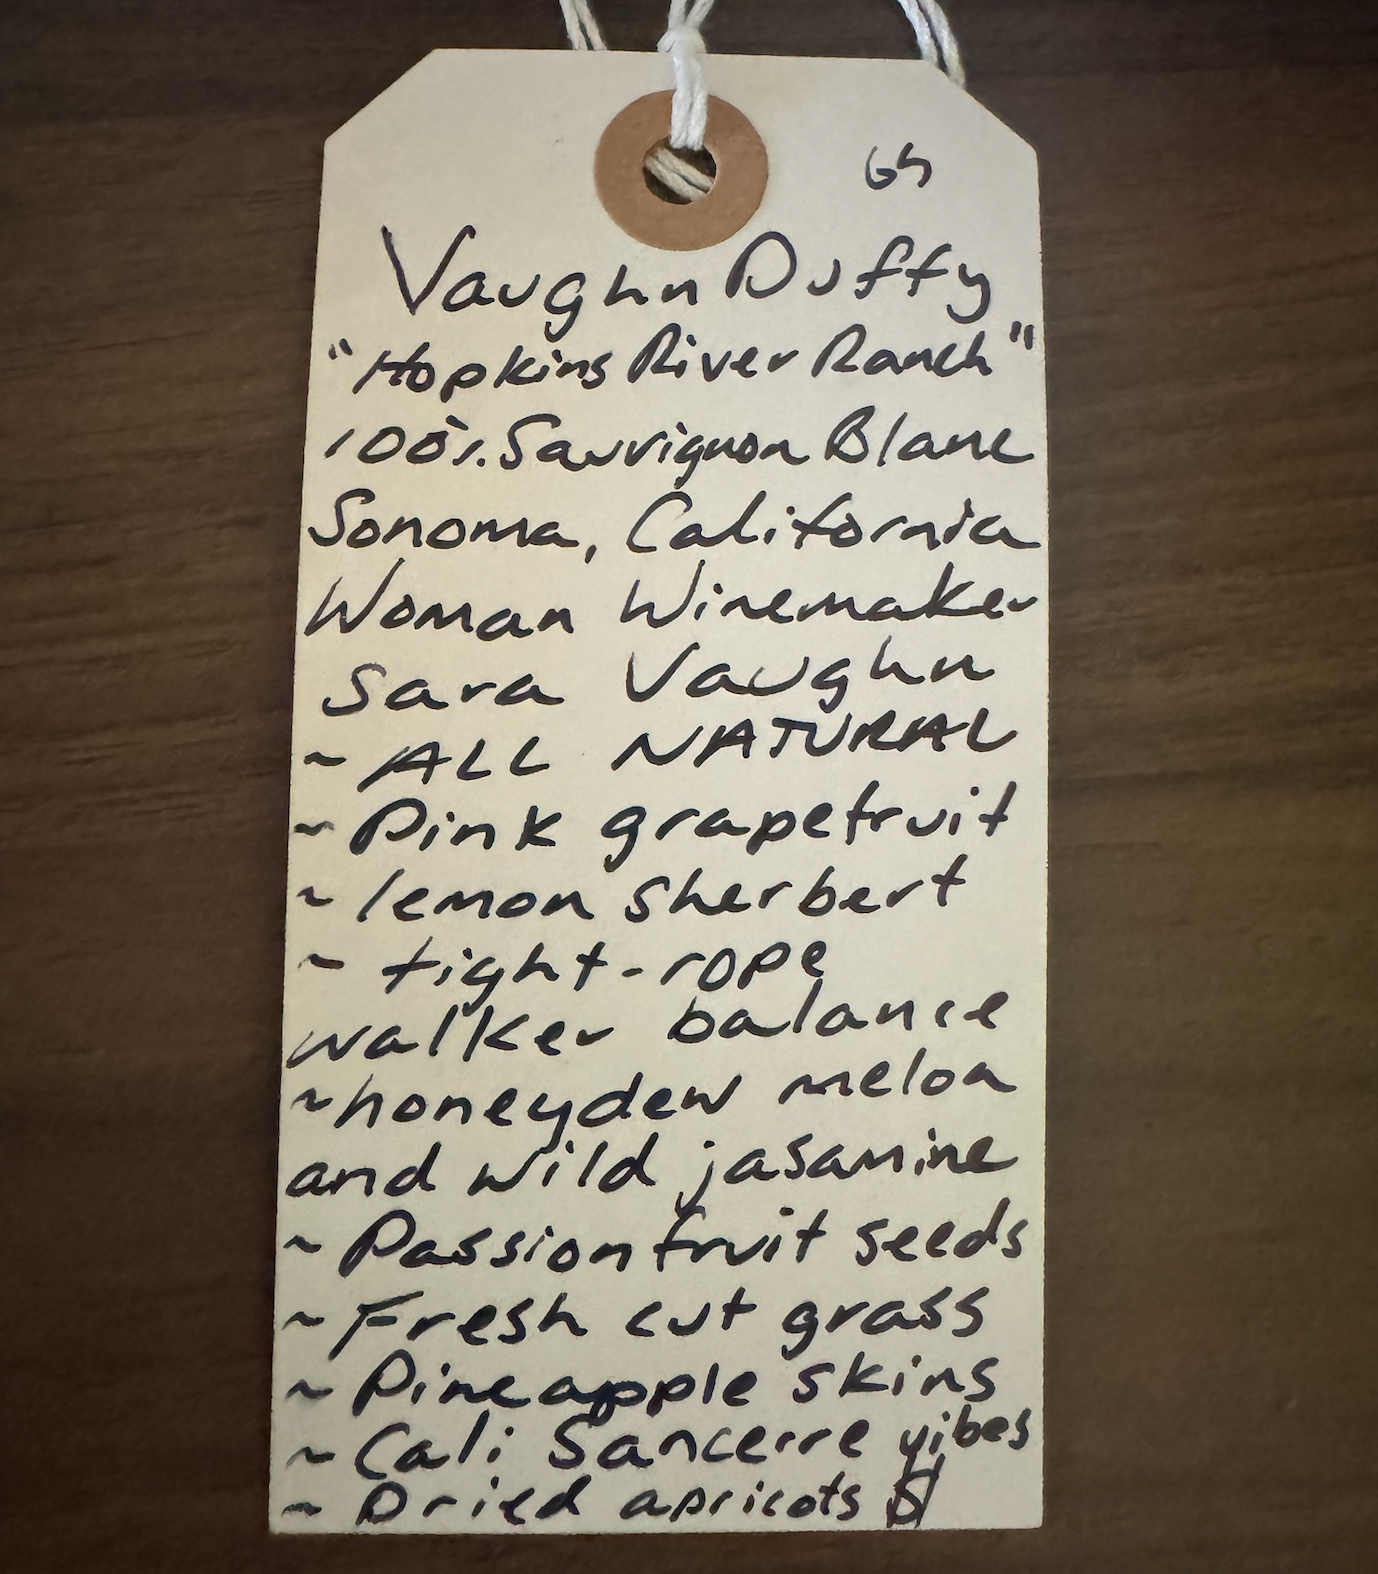 Vaughn Duffy
"Hopkins River Ranch"
100% Sauvignon Blanc
Sonoma, California
Woman Winemaker
Sara Vaughn
~ ALL NATURAL
~ Pink grapefruit
~ lemon sherbert
~ tight-rope
walker balance
~honeydew melon
and wild jasamine
~ Passionfruit seeds
~ Fresh cut grass
~ Pineapple skins
~ Cali Sancerre vibes
~ Dried apricots